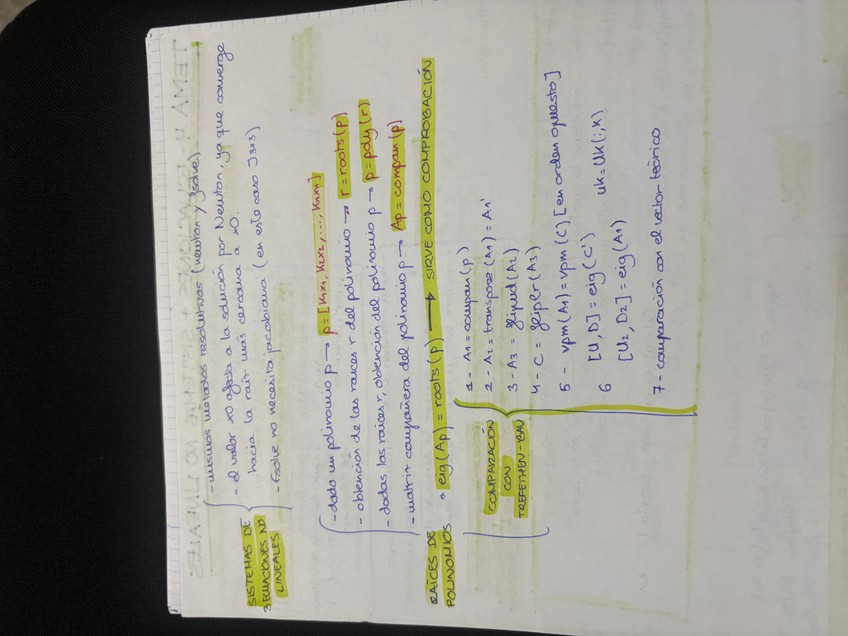 SISTEMAS DE
ECUACIONES NO
LINEALES
- mismos métodos resolutivos (newton y fsolve)
- el valor x0 afecta a la solución por Newton, ya que converge
hacia la raíz más cercana a x0.
- fsolve no necesita jacobiana (en este caso J3x3)
RAÍCES DE
POLINOMIOS
- dado un polinomio p → p = [k1x1, k2x2, ..., knxn]
- obtención de las raíces r del polinomio → r = roots(p)
- dadas las raíces r, obtención del polinomio p → p = poly(r)
- matriz compañera del polinomio p → Ap = compan(p)
• eig(Ap) = roots(p) → SIRVE COMO COMPROBACIÓN
COMPARACIÓN
CON
TREFETHEN-BAU
1 - A1 = compan(p)
2 - A2 = transpose(A1) = A1'
3 - A3 = flipud(A2)
4 - C = fliplr(A3)
5 - vpm(A1) = vpm(C) [en orden opuesto]
6 [U, D] = eig(C) uk = Uk(:,k)
[U2, D2] = eig(A1)
7 - comparación con el vector teórico